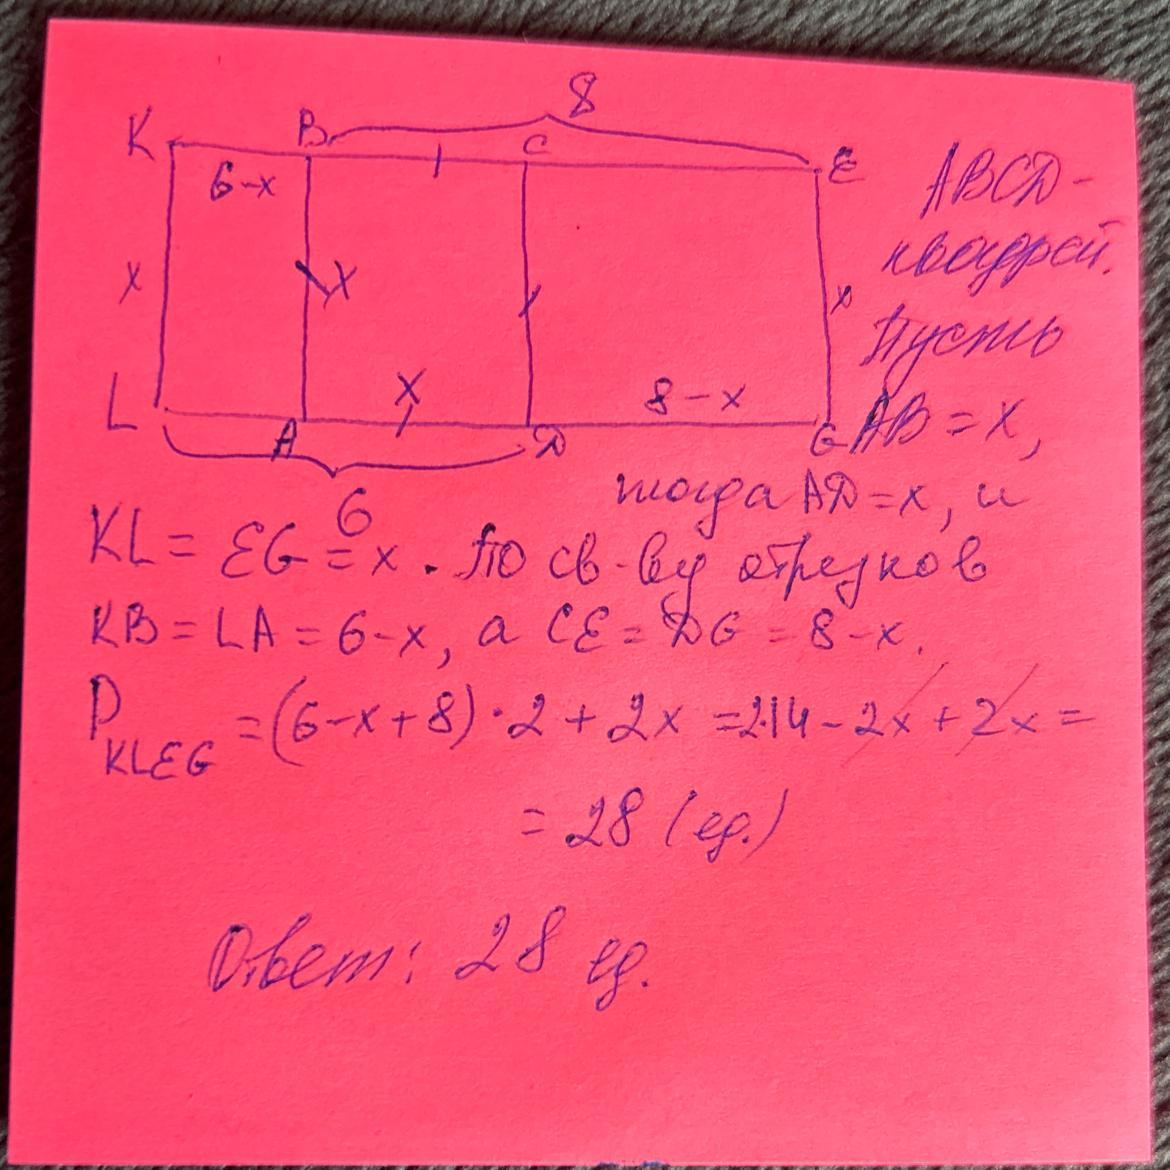 8
K B C E
6-x
x x x
x 8-x
L A D G
6
ABCD-
квадрат.
Пусть
AB = x,
тогда AD = x, и
KL = EG = x. По св-ву отрезков
KB = LA = 6-x, а CE = DG = 8-x.
P KLEG = (6-x+8)·2 + 2x = 2·14 - 2x + 2x =
= 28 (ед.)
Ответ: 28 ед.